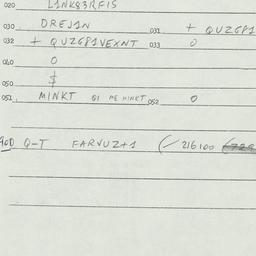 020 L1NK83RFIS
030 DREJ1N 031 + QUZG81
032 + QUZG81VEXNT 033 0
040 0
$
050
051 MINKT 01 ME MINKT 052 0
90D Q-T FARVUZ+1 (/ 216100